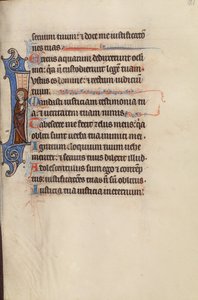 seruum tuum: et doce me iustificatio
nes tuas
Exitus aquarum deduxerunt oculi
mei: quia non custodierunt legem tuam
Iustus es domine: et rectum iudicium
tuum
Mandasti iusticiam testimonia tu
a: et ueritatem tuam nimis
Tabescere me fecit zelus meus: quia
obliti sunt uerba tua inimici mei
Ignitum eloquium tuum uehe
menter: et seruus tuus dilexit illud
Adolescentulus sum ego et contemp
tus: iustificationes tuas non sum oblitus
Iusticia tua iusticia in eternum: